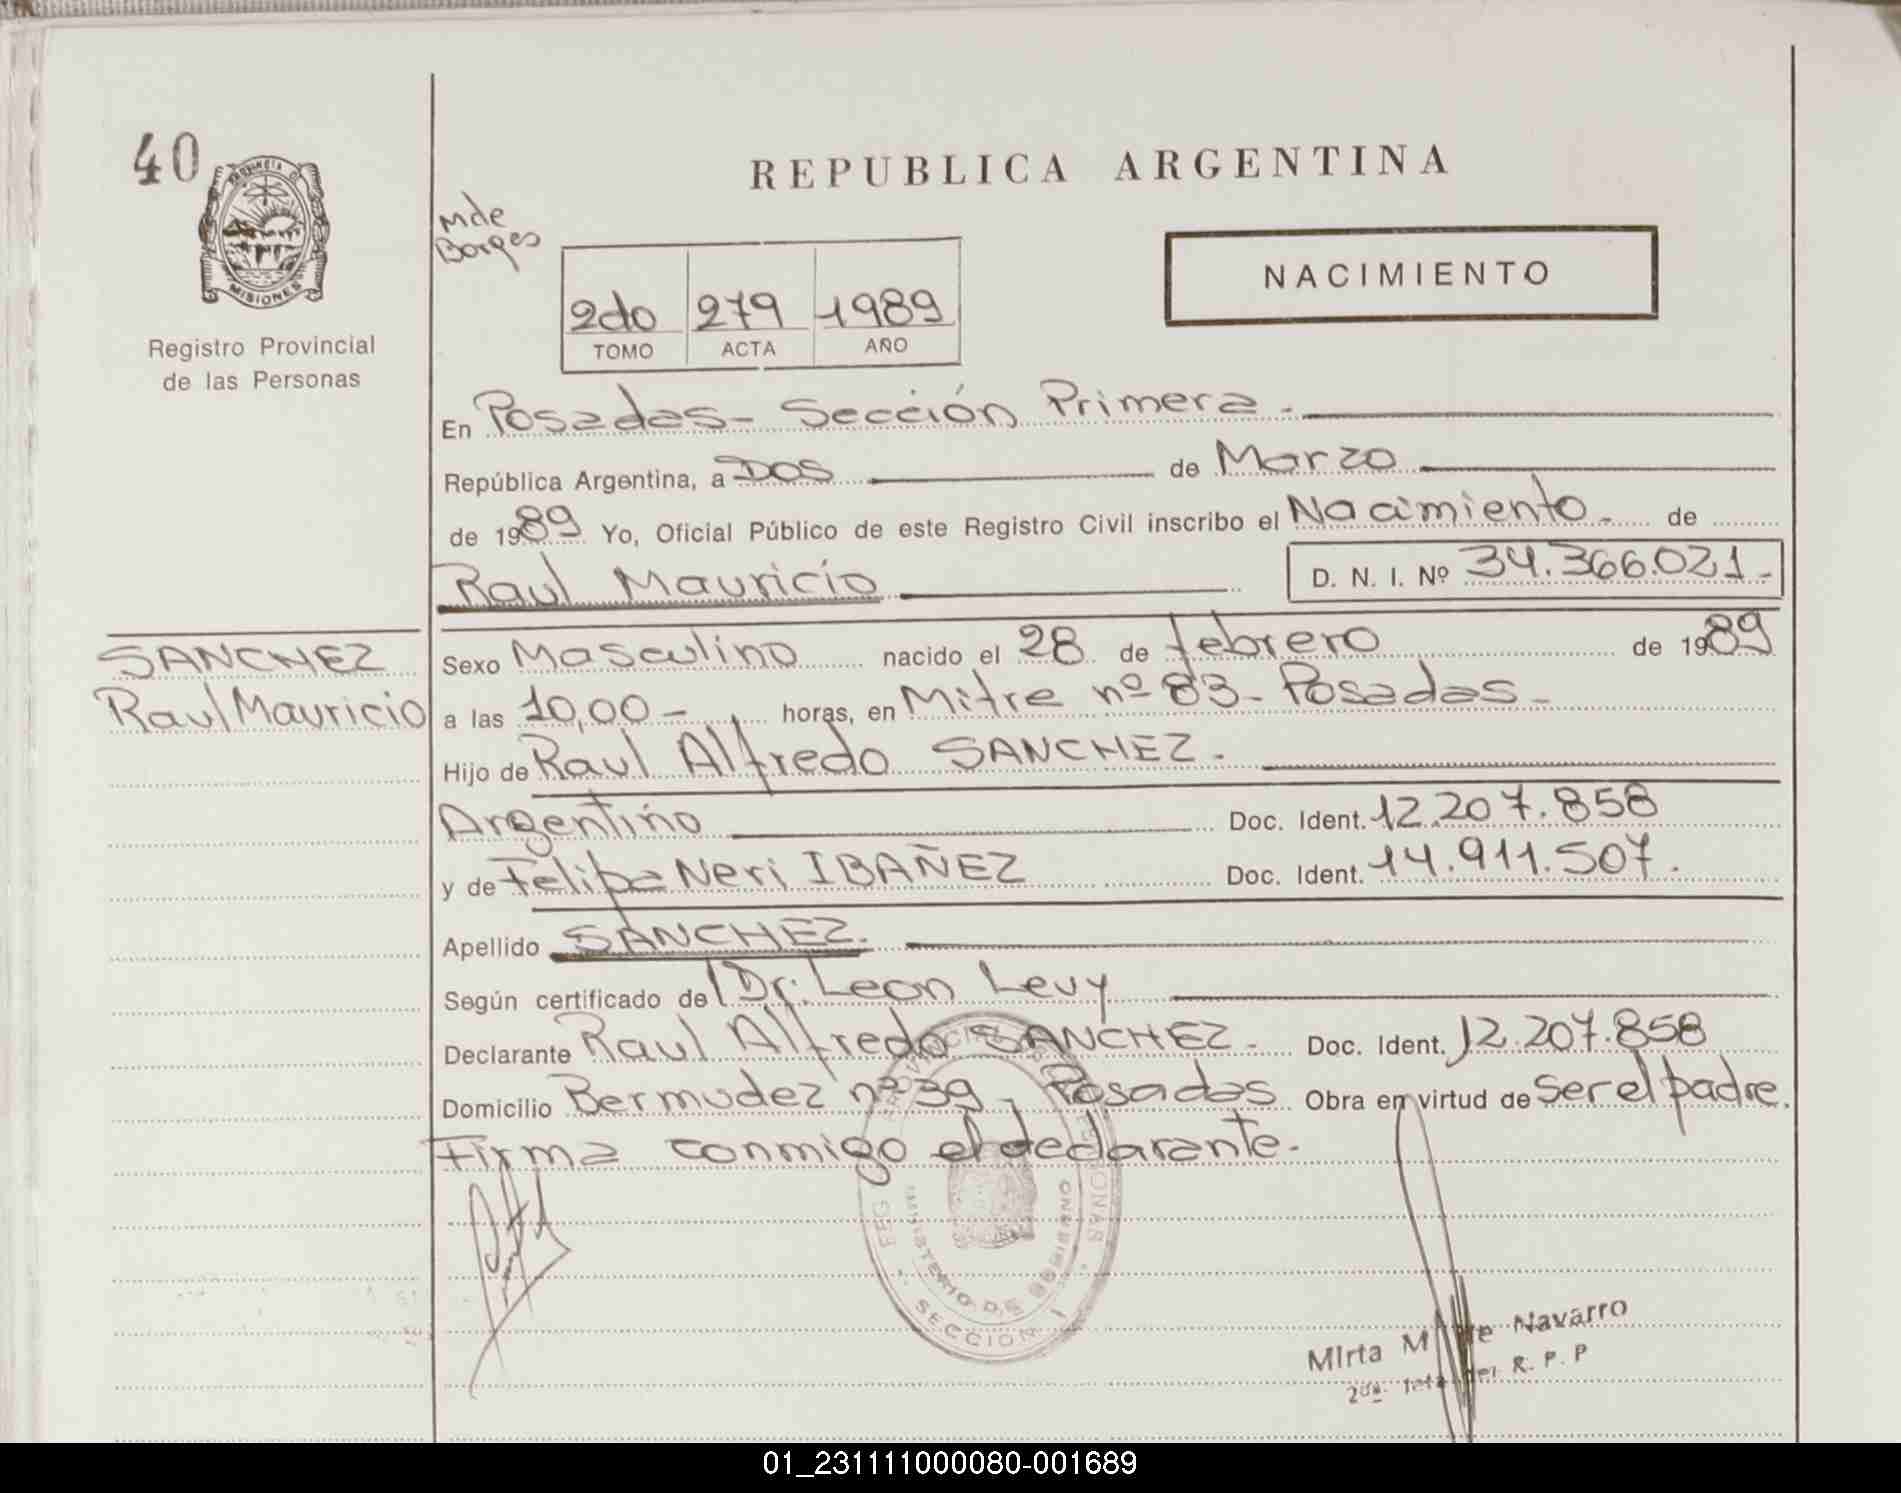 40
PROVINCIA DE
MISIONES
Registro Provincial
de las Personas
REPUBLICA ARGENTINA
M de
Borges
2do 279 1989
TOMO ACTA AÑO
NACIMIENTO
En Posadas - Sección Primera -
República Argentina, a DOS de Marzo
de 1989 Yo, Oficial Público de este Registro Civil inscribo el Nacimiento - de
Raul Mauricio D. N. I. Nº 34.366.021 -
SANCHEZ
Raul Mauricio
Sexo Masculino nacido el 28 de febrero de 1989
a las 10,00 - horas, en Mitre nº 83 - Posadas -
Hijo de Raul Alfredo SANCHEZ.
Argentino Doc. Ident. 12.207.858
y de Felipa Neri IBAÑEZ Doc. Ident. 14.911.507.
Apellido SANCHEZ.
Según certificado del Dr. Leon Levy
Declarante Raul Alfredo SANCHEZ - Doc. Ident. 12.207.858
Domicilio Bermudez nº 39 - Posadas Obra en virtud de ser el padre.
Firma conmigo el declarante. -
MINISTERIO DE GOBIERNO
SECCION 1
Mirta M de Navarro
del R. P. P
01_231111000080-001689